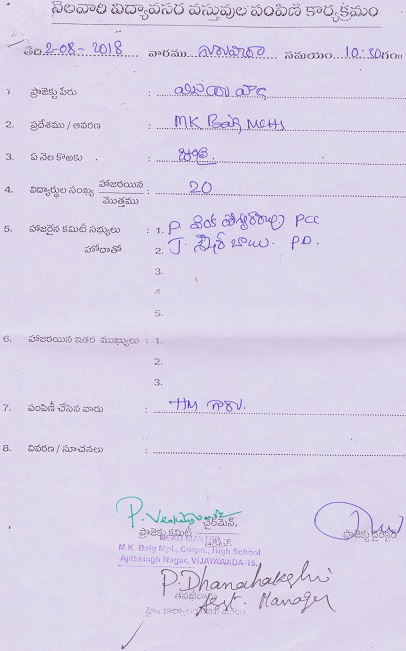 నెలవారి విద్యావసర వస్తువుల పంపిణి కార్యక్రమం
తేది 2-08-2018 వారము గురువారం సమయం 10:30గం॥
1 ప్రాజెక్టు పేరు :
2. ప్రదేశము / ఆవరణ : MK Baig MCHS
3. ఏ నెల కొఱకు : జులై
4. విద్యార్థుల సంఖ్య హాజరయిన / మొత్తము : 20
5. హాజరైన కమిటీ సభ్యులు : 1. P. PCC
హోదాతో 2. J. బాబు. P.D.
3.
4
5.
6. హాజరయిన ఇతర ముఖ్యులు : 1.
2.
3.
7. పంపిణీ చేసిన వారు : HM గారు.
8. వివరణ / సూచనలు :
P. ఛైర్మెన్,
ప్రాజెక్టు కమిటీ ప్రాజెక్టు డైరెక్టర్
HEAD MASTER
M.K. Baig Mpl., Corpn., High School
Ajithsingh Nagar, VIJAYAWADA-15.
P. Dhanalakshmi
Asst. Manager